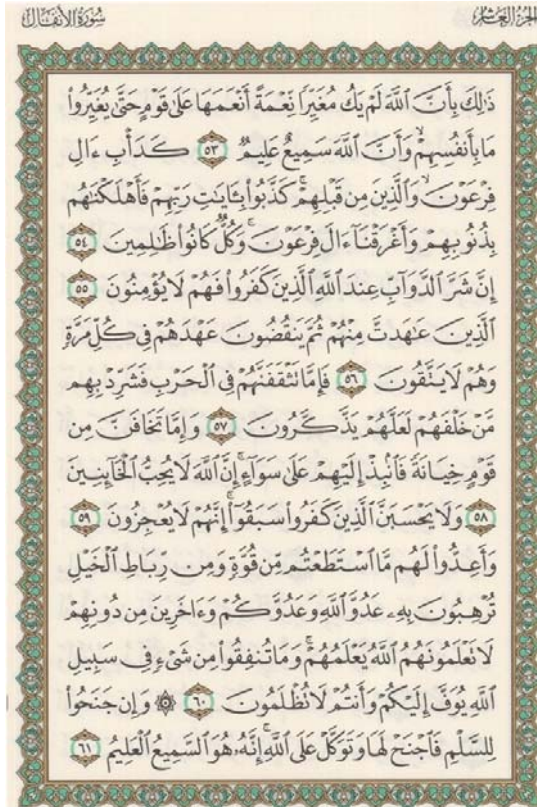 الجزء العاشر
سورة الأنفال
ذَٰلِكَ بِأَنَّ ٱللَّهَ لَمْ يَكُ مُغَيِّرًا نِّعْمَةً أَنْعَمَهَا عَلَىٰ قَوْمٍ حَتَّىٰ يُغَيِّرُوا۟
مَا بِأَنفُسِهِمْ ۙ وَأَنَّ ٱللَّهَ سَمِيعٌ عَلِيمٌ ٥٣ كَدَأْبِ ءَالِ
فِرْعَوْنَ ۙ وَٱلَّذِينَ مِن قَبْلِهِمْ ۚ كَذَّبُوا۟ بِـَٔايَـٰتِ رَبِّهِمْ فَأَهْلَكْنَـٰهُم
بِذُنُوبِهِمْ وَأَغْرَقْنَآ ءَالَ فِرْعَوْنَ ۚ وَكُلٌّ كَانُوا۟ ظَـٰلِمِينَ ٥٤
إِنَّ شَرَّ ٱلدَّوَآبِّ عِندَ ٱللَّهِ ٱلَّذِينَ كَفَرُوا۟ فَهُمْ لَا يُؤْمِنُونَ ٥٥
ٱلَّذِينَ عَـٰهَدتَّ مِنْهُمْ ثُمَّ يَنقُضُونَ عَهْدَهُمْ فِى كُلِّ مَرَّةٍ
وَهُمْ لَا يَتَّقُونَ ٥٦ فَإِمَّا تَثْقَفَنَّهُمْ فِى ٱلْحَرْبِ فَشَرِّدْ بِهِم
مَّنْ خَلْفَهُمْ لَعَلَّهُمْ يَذَّكَّرُونَ ٥٧ وَإِمَّا تَخَافَنَّ مِن
قَوْمٍ خِيَانَةً فَٱنۢبِذْ إِلَيْهِمْ عَلَىٰ سَوَآءٍ ۚ إِنَّ ٱللَّهَ لَا يُحِبُّ ٱلْخَآئِنِينَ
٥٨ وَلَا يَحْسَبَنَّ ٱلَّذِينَ كَفَرُوا۟ سَبَقُوٓا۟ ۚ إِنَّهُمْ لَا يُعْجِزُونَ ٥٩
وَأَعِدُّوا۟ لَهُم مَّا ٱسْتَطَعْتُم مِّن قُوَّةٍ وَمِن رِّبَاطِ ٱلْخَيْلِ
تُرْهِبُونَ بِهِۦ عَدُوَّ ٱللَّهِ وَعَدُوَّكُمْ وَءَاخَرِينَ مِن دُونِهِمْ
لَا تَعْلَمُونَهُمُ ٱللَّهُ يَعْلَمُهُمْ ۚ وَمَا تُنفِقُوا۟ مِن شَىْءٍ فِى سَبِيلِ
ٱللَّهِ يُوَفَّ إِلَيْكُمْ وَأَنتُمْ لَا تُظْلَمُونَ ٦٠ ۞ وَإِن جَنَحُوا۟
لِلسَّلْمِ فَٱجْنَحْ لَهَا وَتَوَكَّلْ عَلَى ٱللَّهِ ۚ إِنَّهُۥ هُوَ ٱلسَّمِيعُ ٱلْعَلِيمُ ٦١